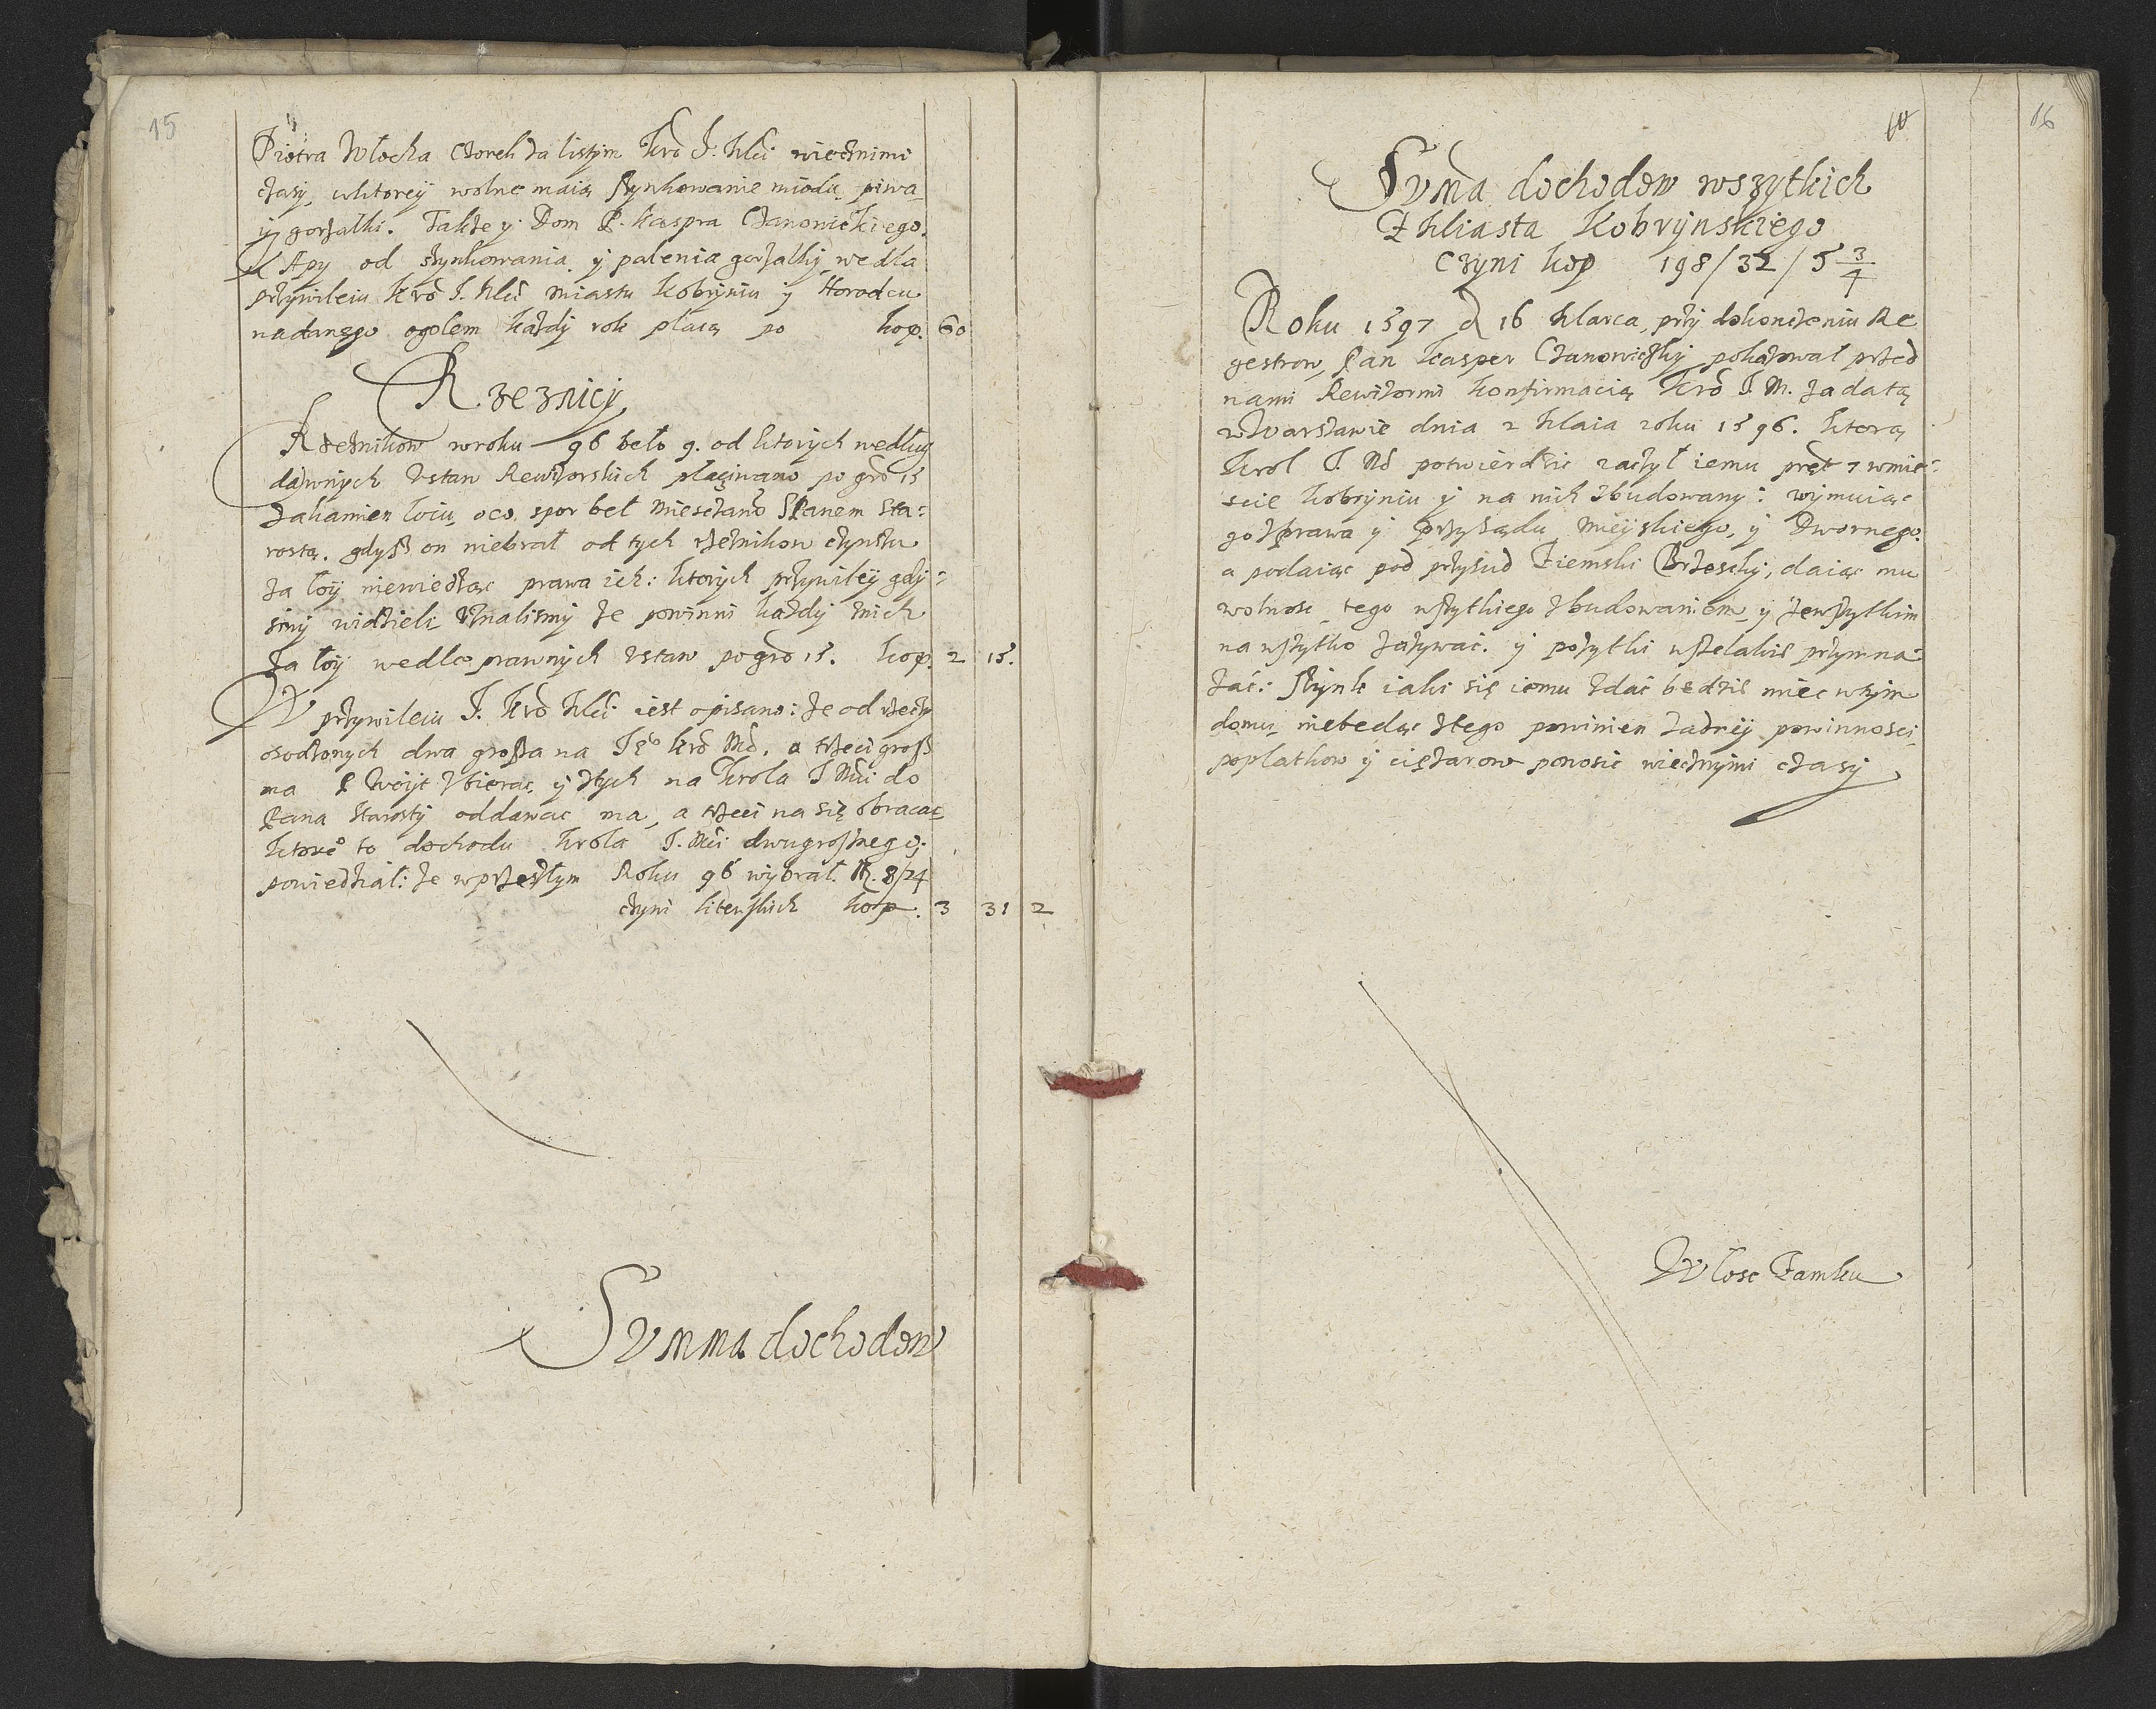 15
Piotra Włocha Czorek za listym Kro J. Mci wiecżnimi
cżasy, wktoreij wolne maią szynkowanie miodu, piwa
ij gorżałki. Także y Dom P. Kaspra Cżanowickiego.
Kapy od szynkowania y palenia gorżałkij wedla
prżywileiu Kro J. Mci miastu Kobryniu y Horodcu
nadanego ogołem każdy rok płacą po kop. 60
Rzeznicy
Rżeżnikow wroku 96 beło 9. od ktorych według
dawnych Vstaw Rewizorskich płaciwano po gro 15
zakamien łoiu, oco spor beł miesczano SPanem Sta:
rostą. gdysz on niebrał od tych rżeżnikow cżynszu
za łoy niewiedżąc prawa ich: ktorych przywiley gdy:
smy widzieli, Vżnalismy że powinni każdy żnich
za łoy wedle prawnych Vstaw pogro 15. kop. 2 15.
W przywileiu J. Kro Mci iest opisano: że od rżeczy
osodżonych dwa grosza na Jego Kro Mo. a trżeci grosz
ma P Woyt Zbierac, y ztych na Krola J Mci do
Pana Starosty oddawac ma, a trżeci na się obracac,
ktore to dochodu Krola J. Mci dwugrosznego:
powiedział: że wprzeszłym Roku 96 wybrał. M. 8/24
cżyni Litewskich kop. 3 31 2
Summa dochodow
16
Suma dochodow wszytkich
Z Miasta Kobrynskiego
Czyni kop 198/32/5 3/4
Roku 1597 d 16 Marca, przy dokonczeniu Re
gestrow, Pan Kasper Czanowiczky pokazował przed
nami Rewizormi konfirmacią Kro J. M. za datą
wWarszawie dnia 2 Maia roku 1596. ktorą
Krol J. Mo potwierdzic raczył iemu pręt 7 wmie:
scie Kobryniu y na nich zbudowany: wymuiąc
go zprawa y przysądu Mieyskiego, y Dwornego.
a podaiąc pod przysud Ziemski Brzesky, daiąc mu
wolnosc tego wszytkiego zbudowaniem y zewszytkim
na wszytko zażywac. y pożytki wszelakie przymna
żać: szynk iaki się iemu zdać będzie miec wtym
domu, niebedąc ztego powinien żadnej powinnosci,
poplatkow y ciężarow ponosic wiecznymi czasy
Włosc Zamku